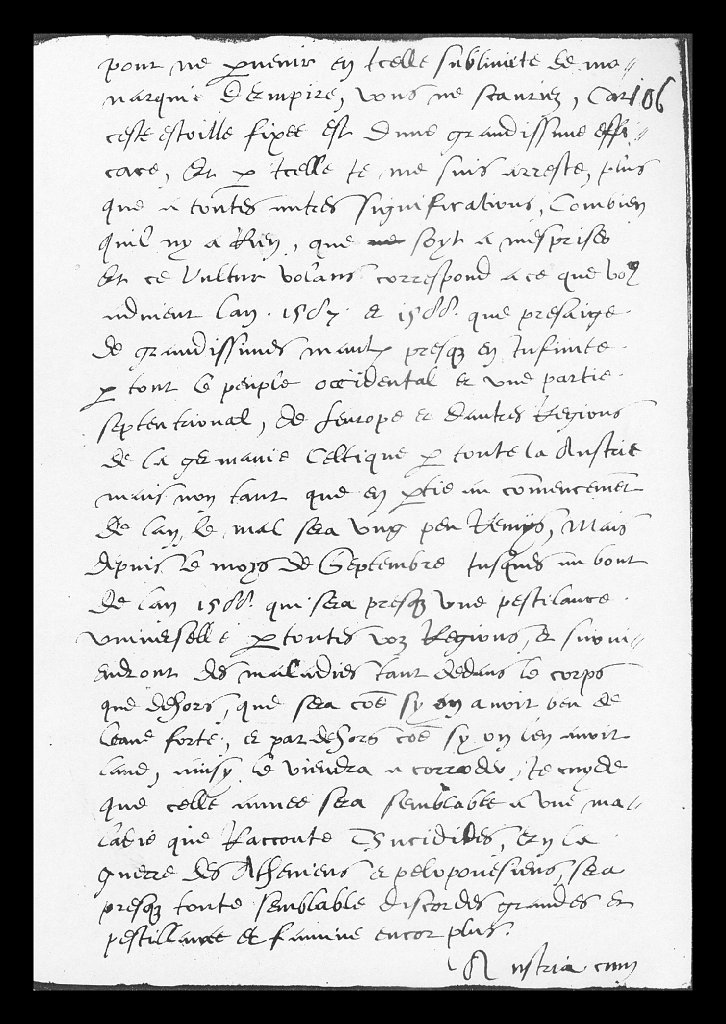 pour ne pvenir en Icelle sublimete de mo-
narquie d'Empire, vous ne scauriez, Car
106
ceste estoille fixee est dune grandissime effi-
cace, Et p Icelle Je me suis arreste, plus
que a toutes autres significations, Combien
quil ny a Rien, que soyt a mespriser
Et ce Vultur volans correspond a ce que voz
admient lan . 1587 . et 1588 . que presaige
de grandissimes maulx presq en Infinite
p tout le peuple occidental et une partie
septentrional, de Leurope et dautres Regions
de la germanie Celtique p toute la Austrie
mais non tant que en ptie au comencement
de lan, le mal sera ung peu Remys, Mais
depuis le moys de Septembre Jusques au bout
de lan 1588 . qui sera presq une pestilance
universelle p toutes voz Regions, et survi-
endront des maladies tant dedans le corps
que dehors, que sera coe sy on avoit beu de
leaue forte, et par dehors coe sy on len avoit
lave, ainsy le viendra a corroder, Je cuyde
que celle annee sera semblable a une ma-
ladie que Racconte Thucidides, en la
guerre des Atheniens et peloponesiens, sera
presq toute semblable discordes grandes et
pestillance et famine encor plus.
Austria cum